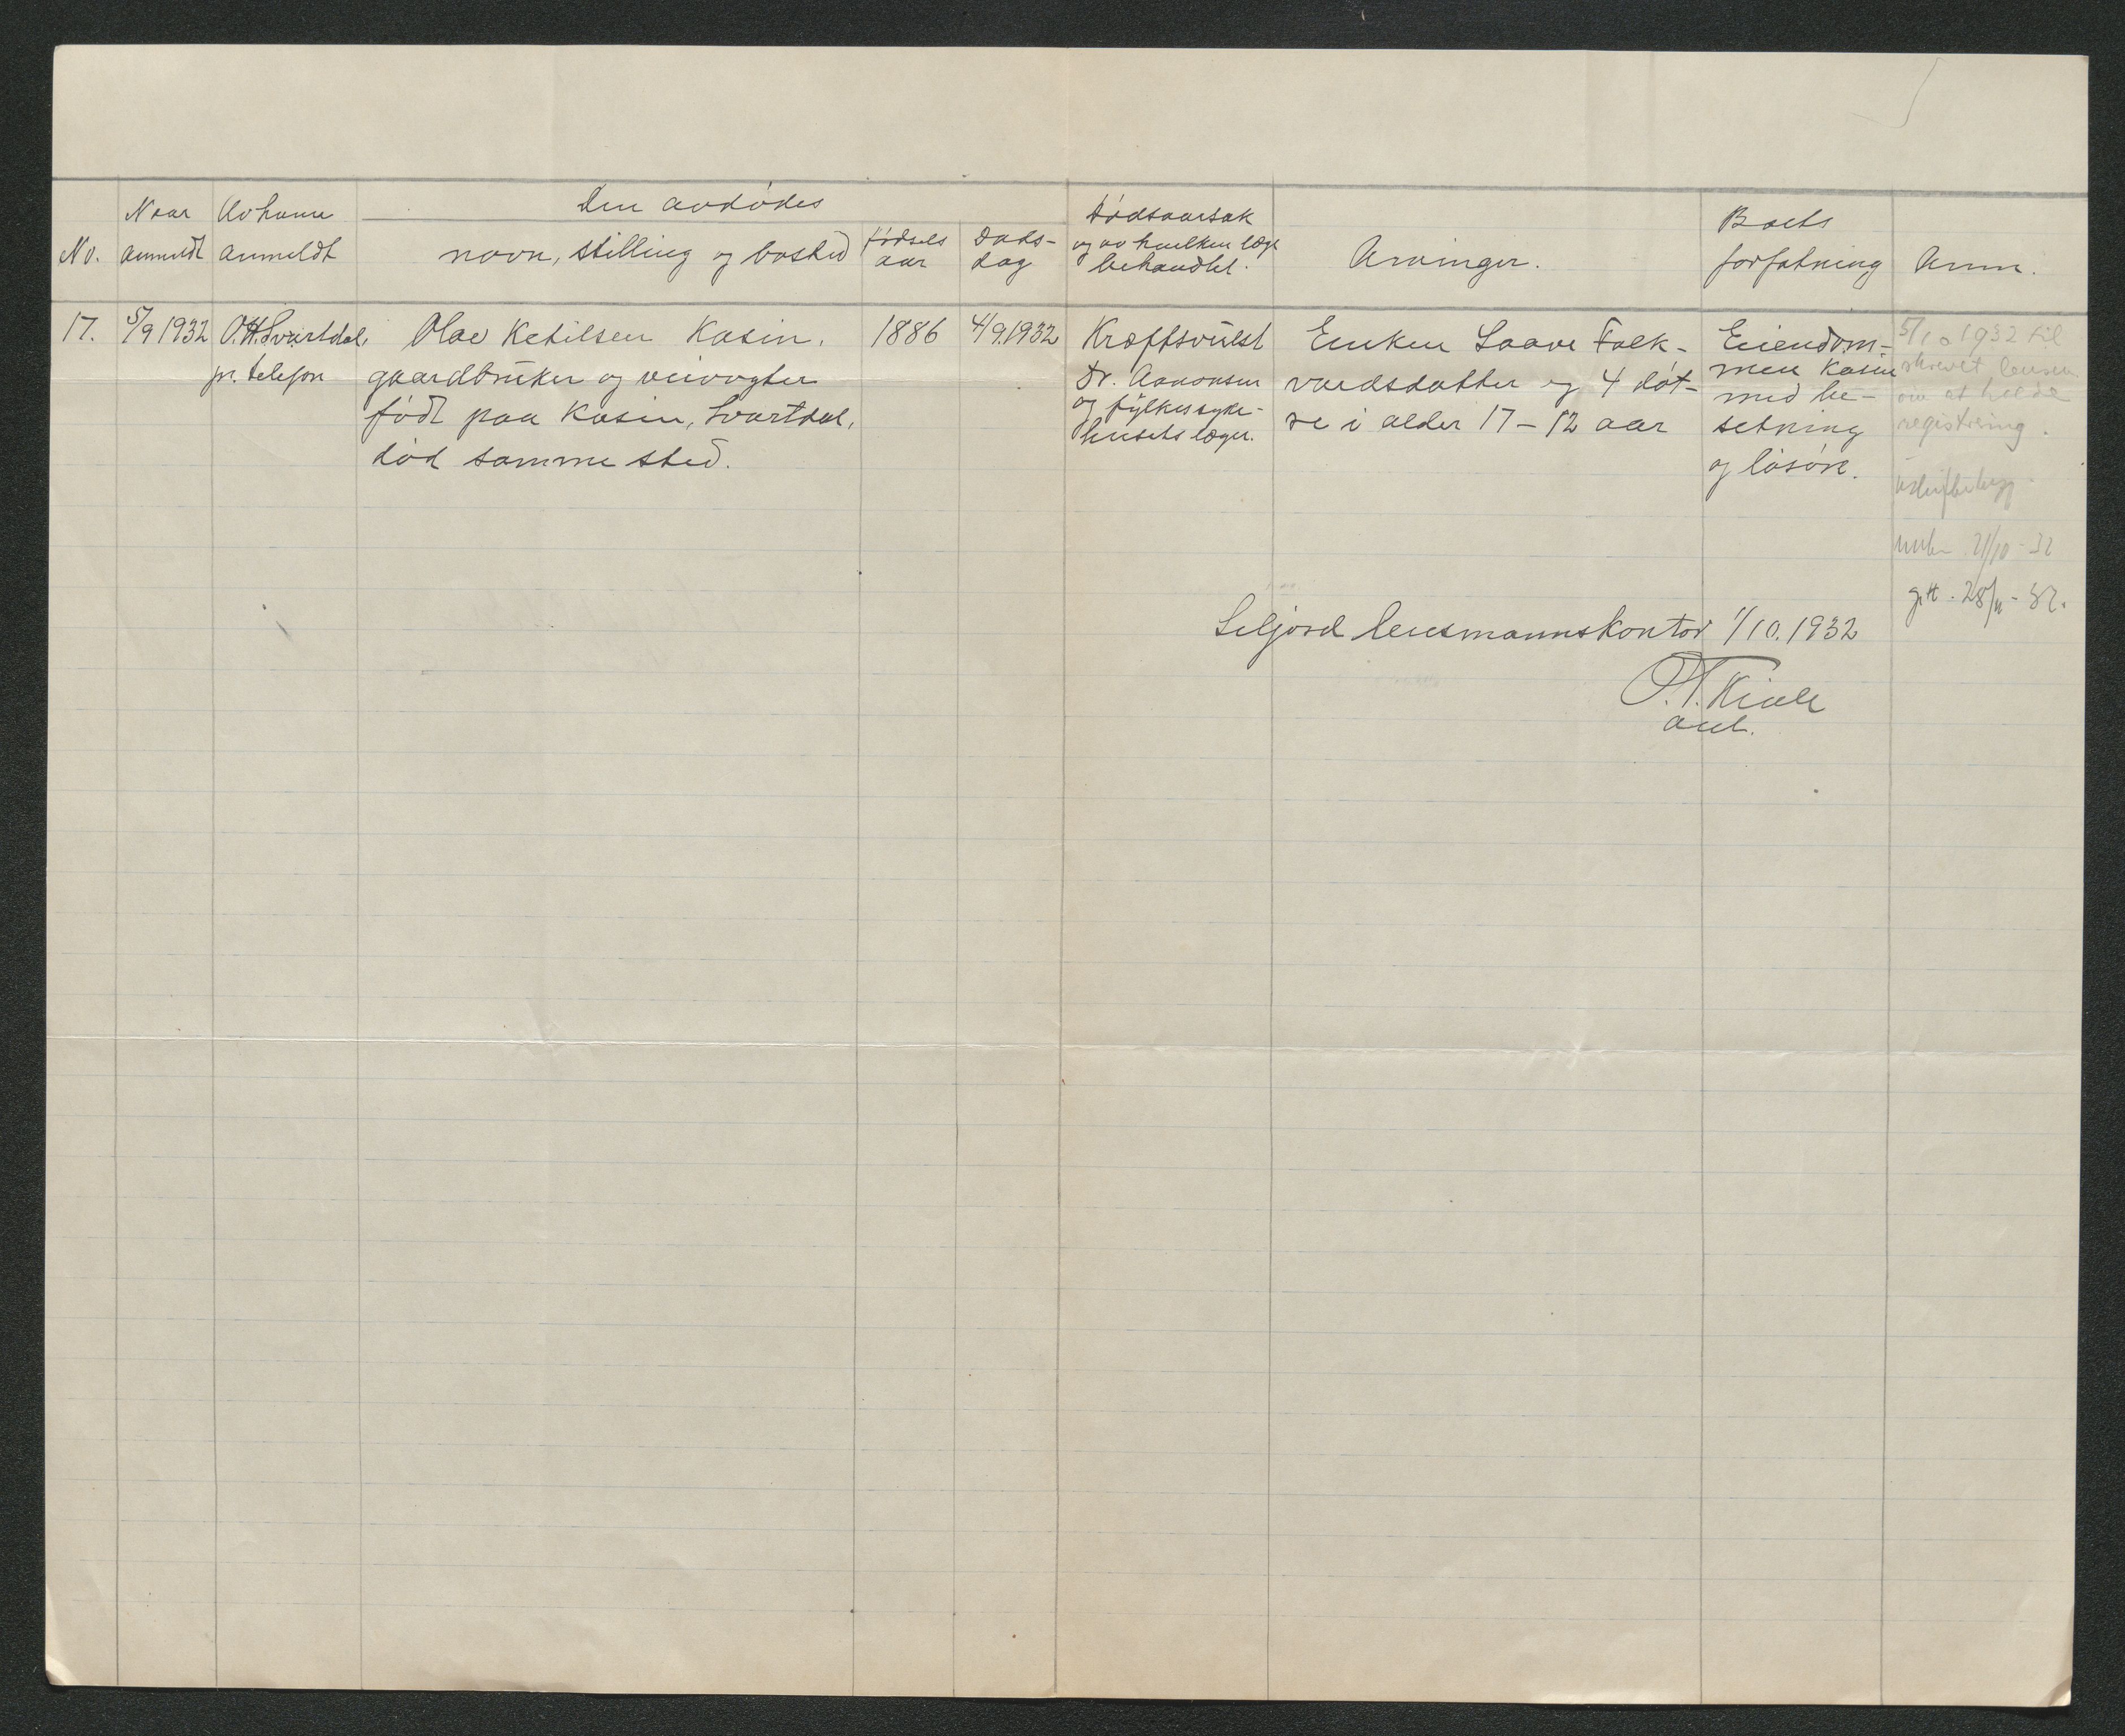 No.
Naar
anmeldt
Av hvem
anmeldt
Den avdødes
navn, stilling og bosted
fødsels
aar
døds-
dag
Dødsaarsak
og av hvilken læge
behandlet.
Arvinger.
Boets
forfatning
Anm.
17.
5/9 1932
O.H. Svartdal,
pr. telefon
Olav Ketilsen Kasin,
gaardbruker og veivogter
født paa Kasin, Svartdal,
død samme sted.
1886
4/9.1932
Kræftsvulst
Dr. Aanonsen
og fylkessyke-
husets læger.
Enken Saave Folk-
vardsdatter og 4 døt-
re i alder 17-12 aar
Eiendom-
men Kasin
med be-
setning
og løsøre.
5/10 1932 til
skrevet lensm
om at holde
registrering.
21/10-32
28/11-32.
Seljord lensmannskontor 1/10.1932
O.T. Kivle